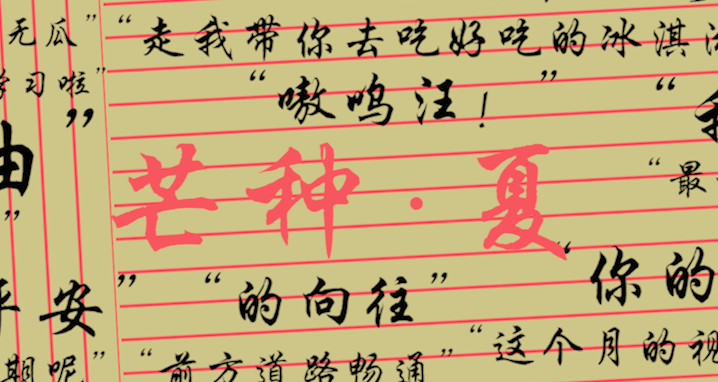 无瓜”
“走我带你去吃好吃的冰淇
学习啦”
“嗷鸣汪！”
“
”
由
芒种·夏
“最
”
平安”
“的向往”
“你的
期呢”
“前方道路畅通”
“这个月的视